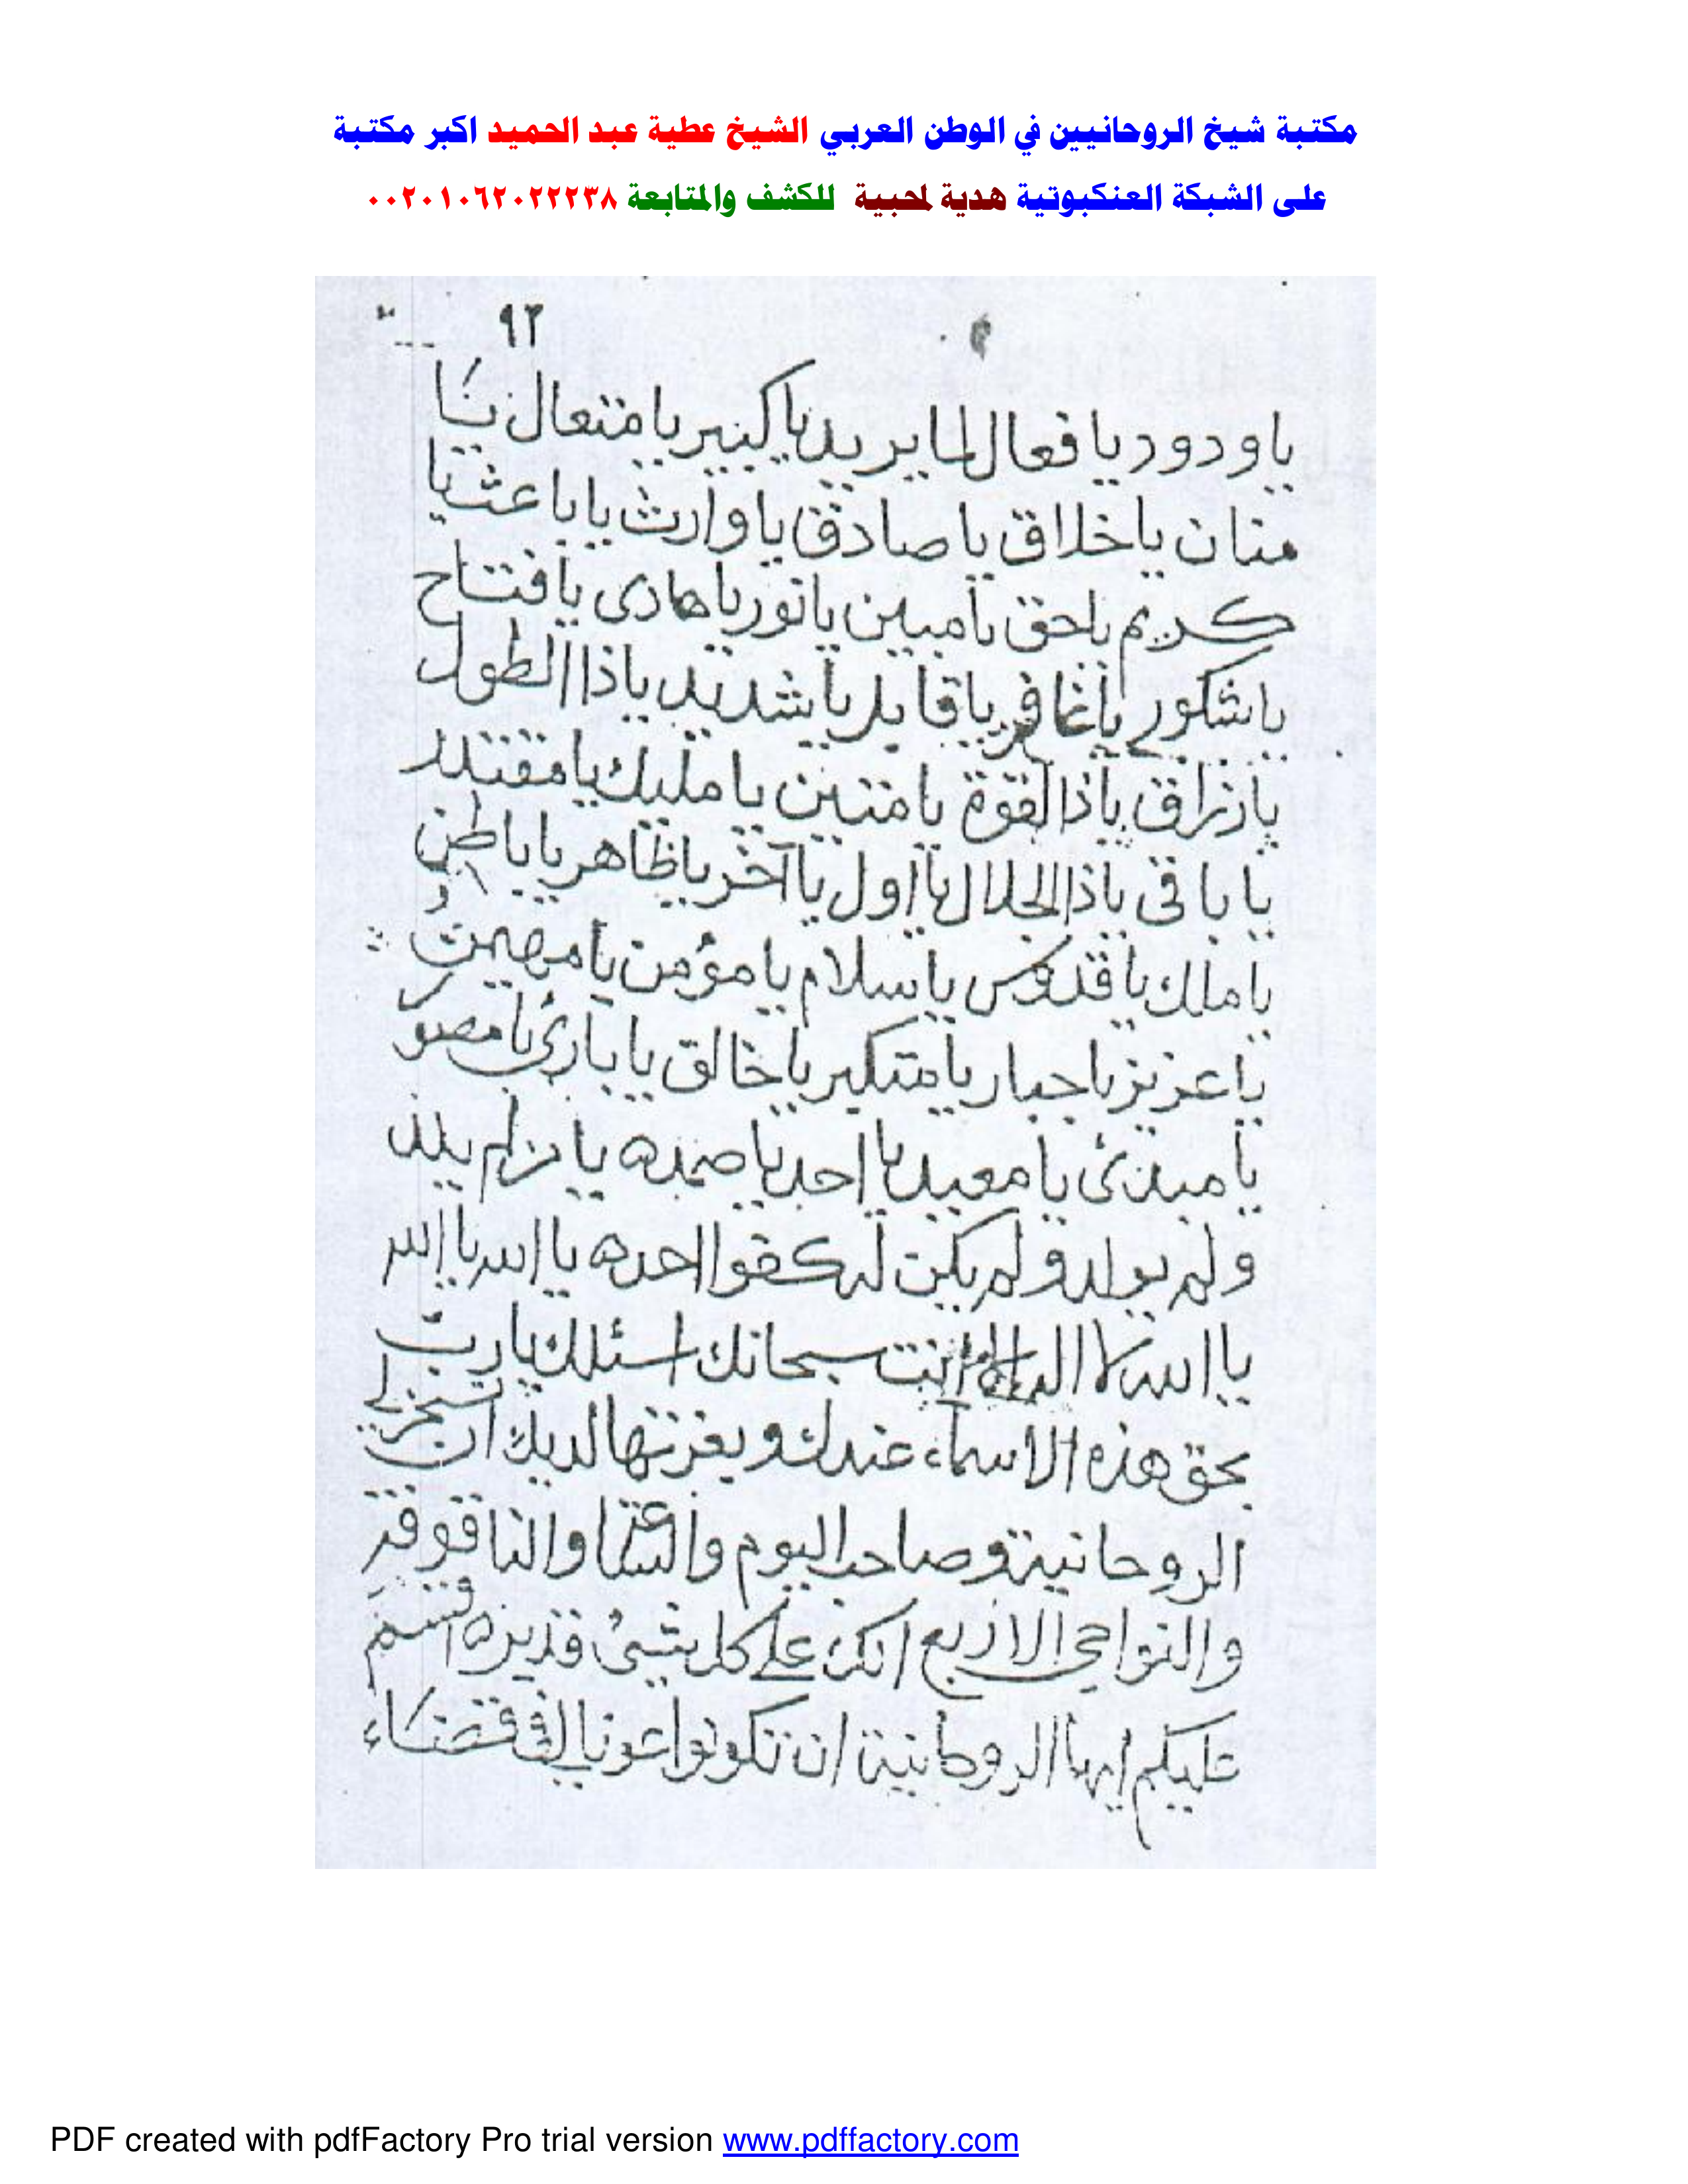 مكتبة شيخ الروحانيين في الوطن العربي الشيخ عطية عبد الحميد اكبر مكتبة
على الشبكة العنكبوتية هدية لمحبية للكشف والمتابعة ٠٠٢٠١٠٦٢٠٢٢٢٣٨
٩٢
يا ودود يا فعال لما يريد يا كبير يا متعال يا
منان يا خلاق يا صادق يا وارث يا باعث يا
كريم يا حق يا مبين يا نور يا هادى يا فتاح
يا شكور يا غافر يا قابل يا شديد يا ذا الطول
يا رزاق يا ذا القوة يا متين يا مليك يا مقتدر
يا باقى يا ذا الجلال يا اول يا آخر يا ظاهر يا باطن
يا ملك يا قدوس يا سلام يا مؤمن يا مهيمن
يا عزيز يا جبار يا متكبر يا خالق يا بارئ يا مصور
يا مبدئ يا معيد يا احد يا صمد ه يا من لم يلد
ولم يولد ولم يكن له كفوا احد ه يا الله يا الله
يا الله لا اله الا انت سبحانك اسئلك يا رب
بحق هذه الاسماء عندك وبعزتها لديك ان تسخر لى
الروحانية وصاحب اليوم والساعة
والنواحى الاربع انك على كل شيئ قدير ه اقسم
عليكم ايها الروحانية ان تكونوا عونا لى فى قضاء
PDF created with pdfFactory Pro trial version www.pdffactory.com